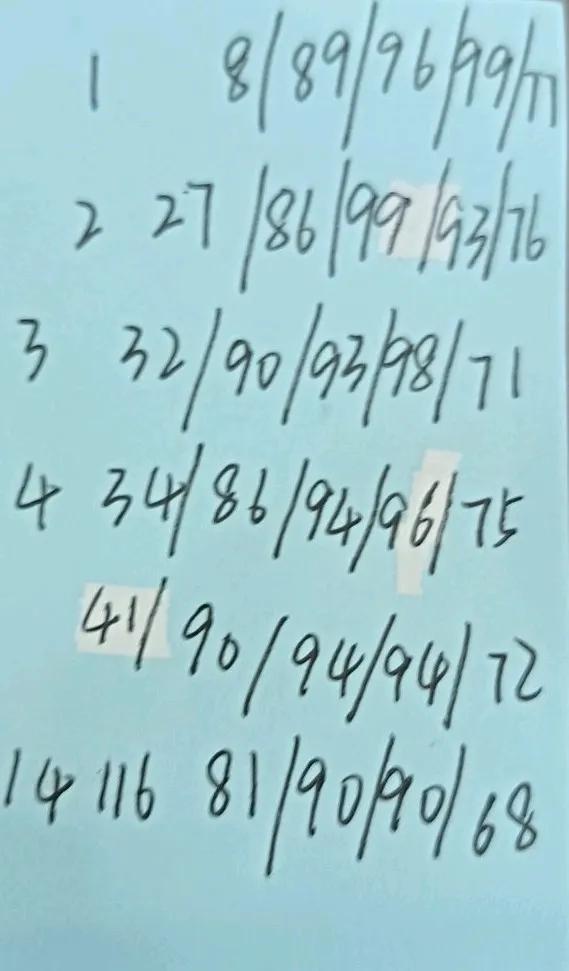 1 8/89/96/99/77
2 27/86/99/93/76
3 32/90/93/98/71
4 34/86/94/96/75
41/90/94/94/72
14 116 81/90/90/68